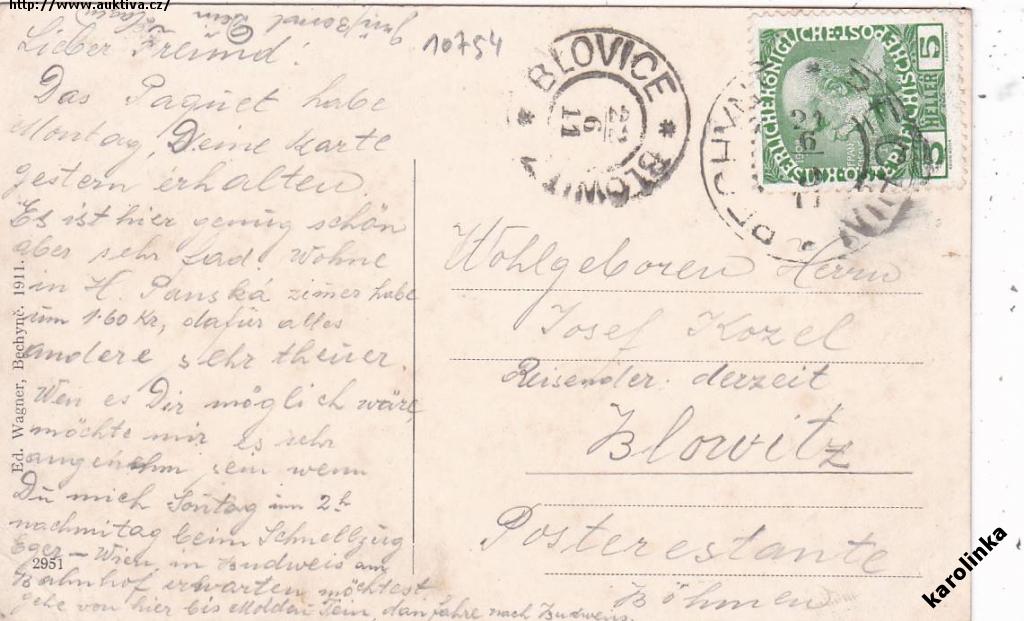 http://www.auktiva.cz/
Lieber Freund!
Das Paquet habe
Montag, Deine Karte
gestern erhalten.
Es ist hier genug schön
aber sehr fad. Wohne
in H. Panská zimer habe
um 1·60 Kr, dafür alles
andere sehr theuer.
Wen es Dir möglich wäre,
möchte mir es sehr
angenehm sein wenn
Du mich Sontag um 2h
nachmitag beim Schnellzug
Eger – Wien, in Budweis am
Bahnhof erwarten möchtest.
gehe von hier bis Moldau Tein, dan fahre nach Budweis.
Dein
10754
BLOVICE * BLOWITZ *
21
6
11
KAISERLICHE KÖNIGLICHE ÖSTERREICHISCHE POST
5 HELLER 5
Wohlgeboren Herrn
Josef Kozel
Reisender: derzeit
Blowitz
Poste restante
Böhmen
Ed. Wagner, Bechyně. 1911.
2951
karolinka